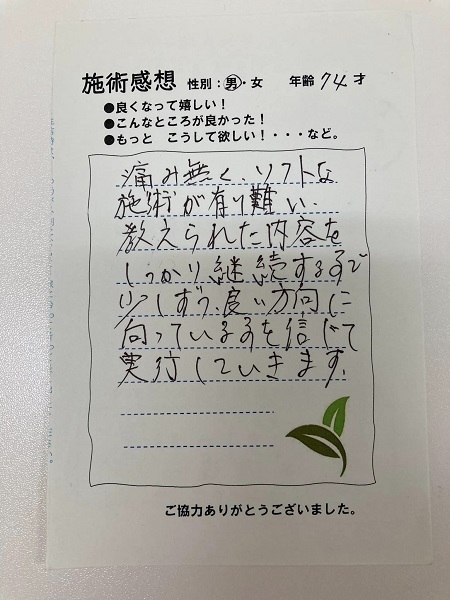 施術感想 性別：男・女 年齢 74才
●良くなって嬉しい！
●こんなところが良かった！
●もっと こうして欲しい！・・・など。
痛み無く、ソフトな
施術が有り難い。
教えられた内容を
しっかり継続する事で
少しずつ、良い方向に
向っている事を信じて
実行していきます。
ご協力ありがとうございました。